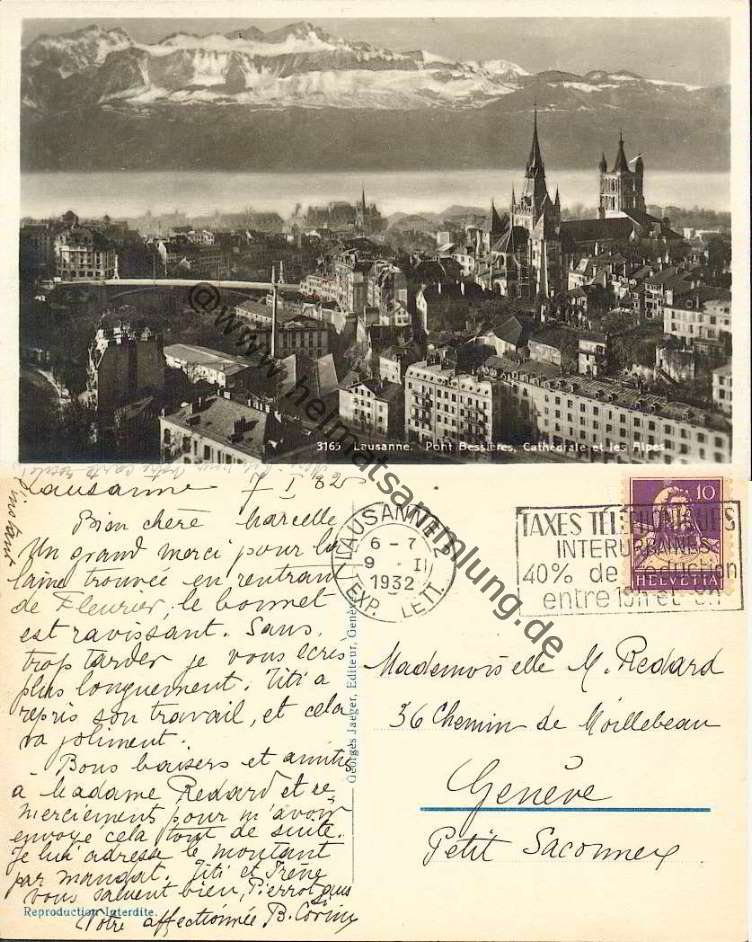 3165 Lausanne. Pont Bessières, Cathédrale et les Alpes
@www.heimatsammlung.de
l'instant
Lausanne 7 I 32
Bien chère Marcelle
Un grand merci pour la
laine trouvée en rentrant
de Fleurier, le bonnet
est ravissant. Sans
trop tarder je vous ecris
plus longuement. Titi a
repris son travail, et cela
va joliment.
Bons baisers et amitié
à Madame Redard et re
merciement pour m'avoir
envoyé cela tout de suite.
Je lui adresse le montant
par mandat. Titi et Irène
vous saluent bien, Pierrot aussi
Votre affectionnée B.
Reproduction Interdite.
Georges Jaeger, Editeur, Genève
LAUSANNE 2
6-7
9. II
1932
EXP. LETT.
TAXES TÉLÉPHONIQUES
INTERURBAINES
40% de réduction
entre 19h et 8h
10
HELVETIA
Mademoiselle M. Redard
36 Chemin de Moillebeau
Genève
Petit Saconnex